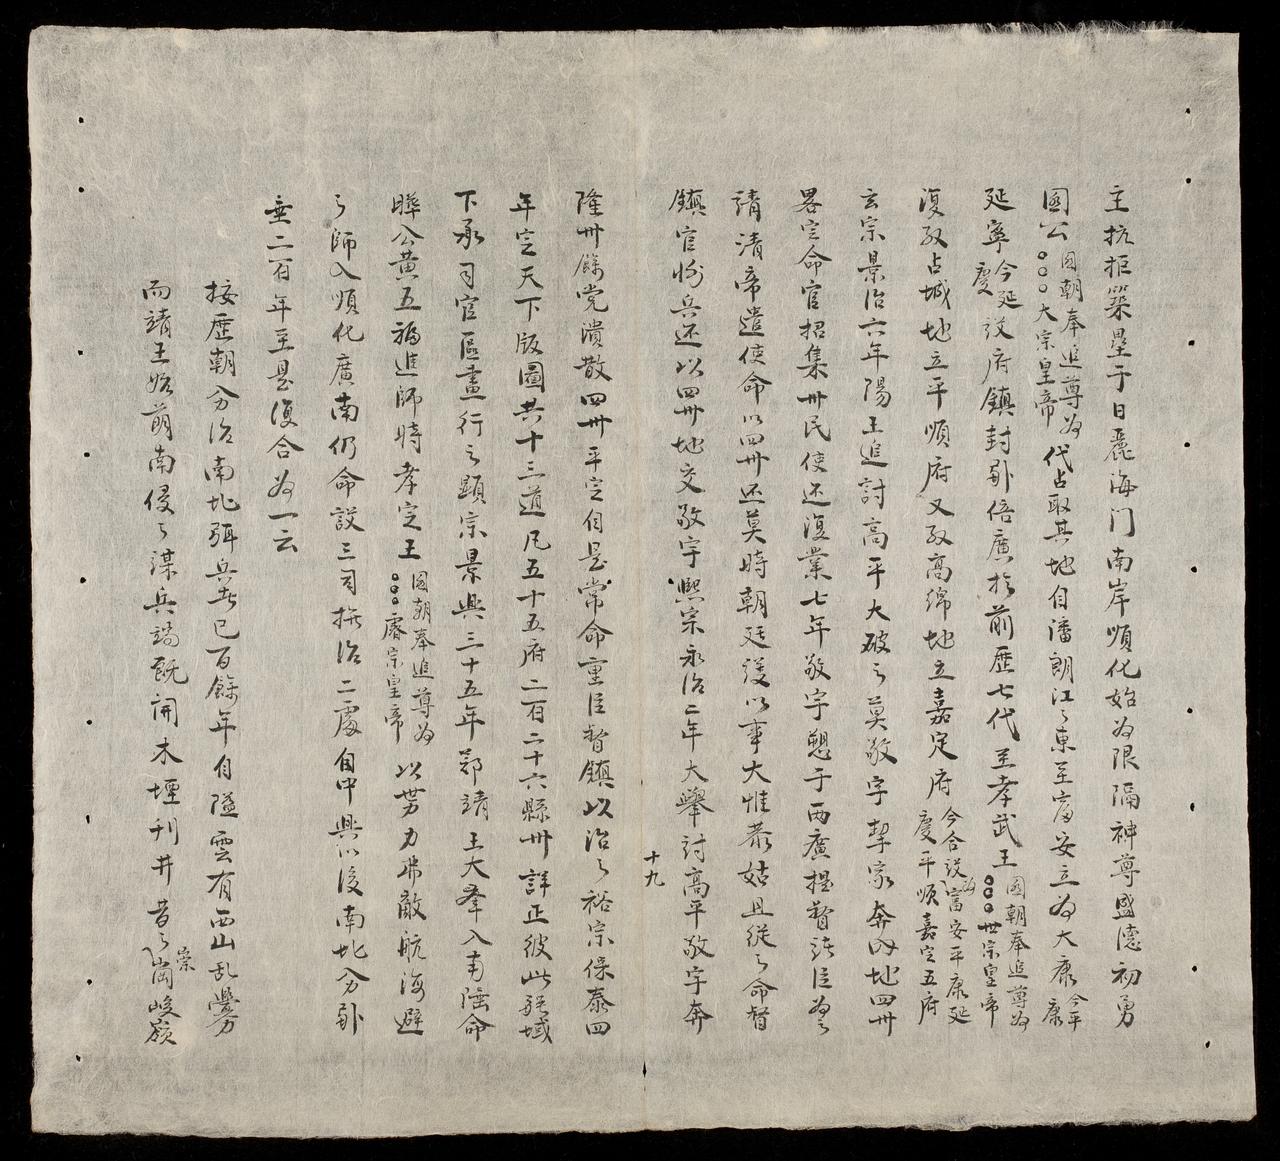 主抗拒築壘于日麗海门南岸順化始为限隔神尊盛德初勇
國公國朝奉追尊为○○○大宗皇帝代占取其地自潘朗江〻東至富安立为大康今平康
延寧今延慶設府鎮封畧倍廣於前歷七代至孝武王國朝奉追尊为○○○世宗皇帝
復取占城地立平順府又取高綿地立嘉定府今合設为富安平康延慶平順嘉定五府
玄宗景治六年陽王追討高平大破之莫敬宇挈家奔内地四州
畧定命官招集州民使还復業七年敬宇懇于两廣提督諸臣为之
請清帝遣使命以四州还莫時朝廷以事大惟恭姑且從之命督
鎮官彻兵还以四州地交敬宇熙宗永治二年大舉討高平敬宇奔
十九
隆州餘党潰散四州平定自是常命重臣督鎮以治之裕宗保泰四
年定天下版圖共十三道凡五十五府二百二十六縣州詳正彼此疆域
下承司官區畫行之顯宗景興三十五年鄭靖王大舉入南陲命
曄公黄五福進師時孝定王國朝奉追尊为○○○睿宗皇帝以势力弗敵航海避
之師入順化廣南仍命設三司撫治二處自中興以後南北分畧
垂二百年至是復合为一云
按歷朝分治南北弭兵者已百餘年自隘雲有西山乱釁
而靖王始萌南侵之謀兵端既開木堙刊井昔之崇崗峻嶺